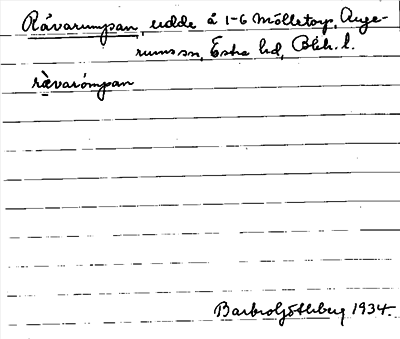 Råvarumpan, udde å 1-6 Mölletorp, Auge-
rums sn, Östra hd, Blek. l.
rævarómpan
Barbro Götlberg 1934.